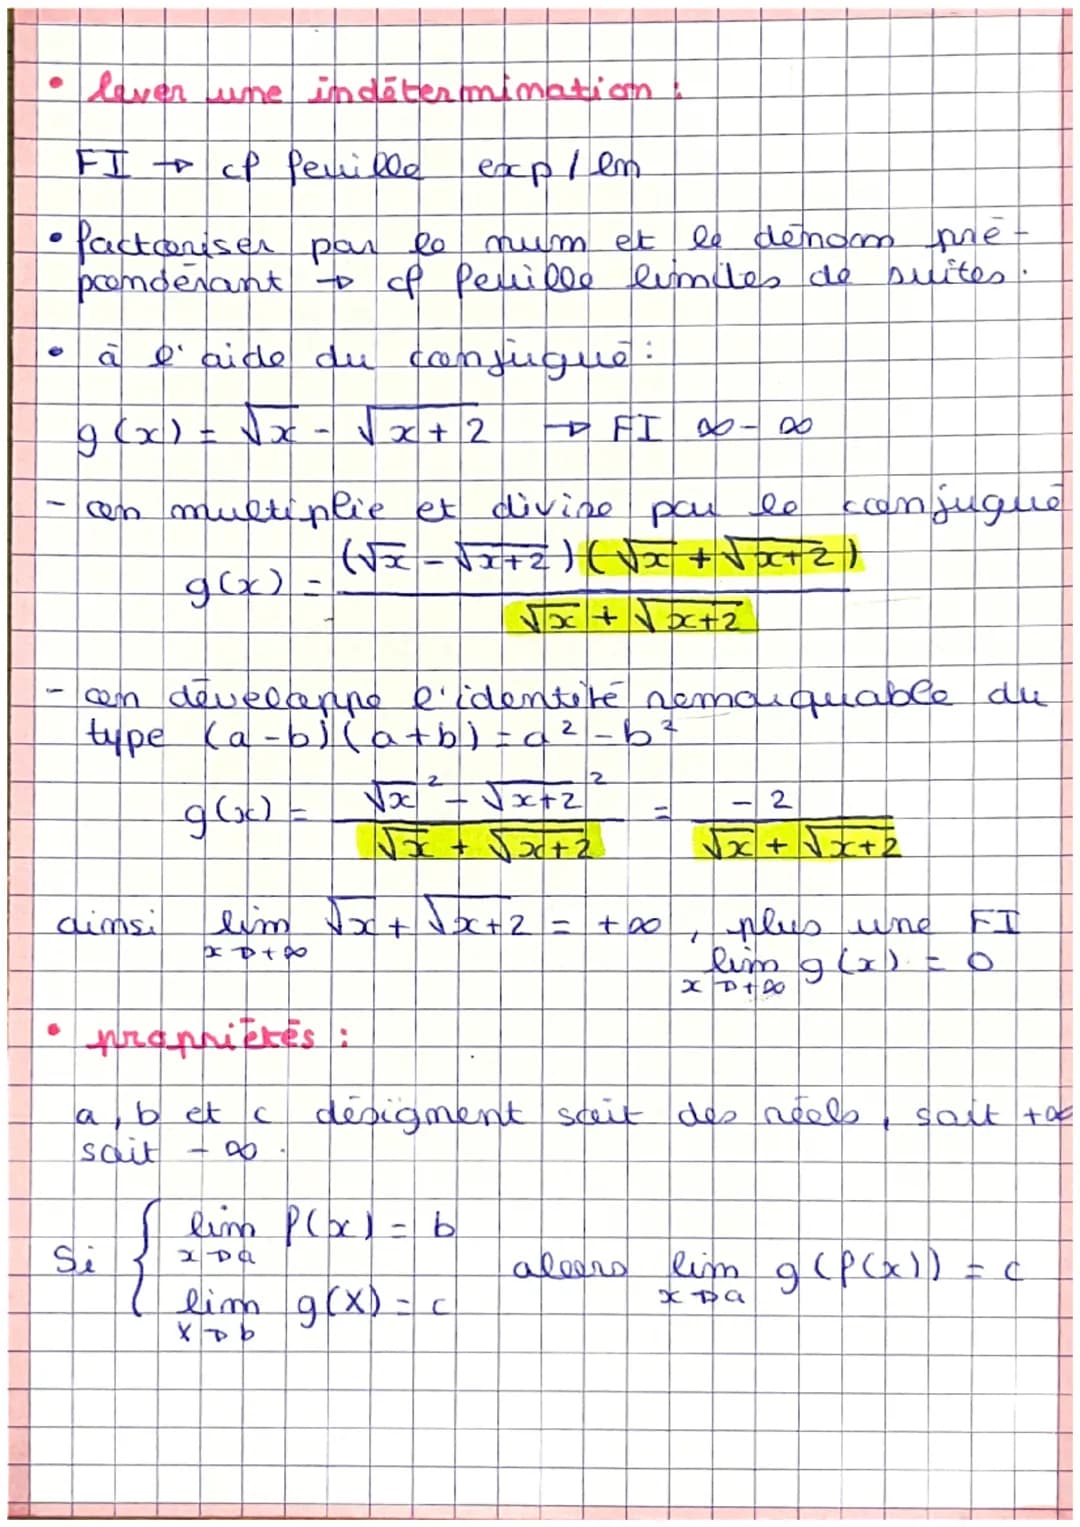 • lever une indétermination :
FI → cf feuille exp / ln
• factoriser par le num et le dénom pré-
pondérant → cf feuille limites de suites.
• à l'aide du conjugué :
g(x) = √x - √x+2 → FI ∞ - ∞
- on multiplie et divise par le conjugué
g(x) = (√x - √x+2)(√x + √x+2)
√x + √x+2
- on développe l'identité remarquable du
type (a-b)(a+b) = a² - b²
g(x) = √x² - √x+2² = -2
√x + √x+2 √x + √x+2
ainsi lim √x + √x+2 = +∞, plus une FI
x→+∞ lim g(x) = 0
x→+∞
• propriétés :
a, b et c désignent soit des réels, soit +∞
soit - ∞.
Si { lim f(x) = b
x→a
alors lim g(f(x)) = c
x→a
lim g(X) = c
X→b